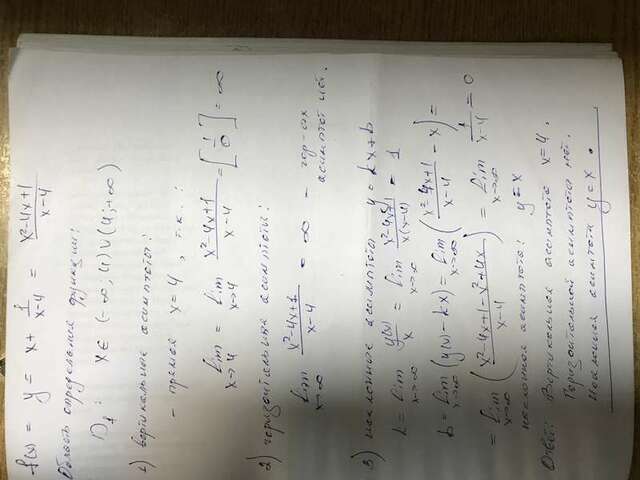 f(x) = y = x + 1/(x-4) = (x²-4x+1)/(x-4)
Область определения функции:
D_f : x ∈ (-∞; 4) ∪ (4; +∞)
1) вертикальные асимптоты:
- прямая x = 4 , т.к. :
lim_{x→4} = lim_{x→4} (x²-4x+1)/(x-4) = [1/0] = ∞
2) горизонтальные асимптоты:
lim_{x→∞} (x²-4x+1)/(x-4) = ∞ - гор-ых
асимптот нет.
3) наклонные асимптоты y = kx + b
k = lim_{x→∞} y(x)/x = lim_{x→∞} (x²-4x+1)/(x(x-4)) = 1
b = lim_{x→∞} (y(x) - kx) = lim_{x→∞} ((x²-4x+1)/(x-4) - x) =
= lim_{x→∞} ((x²-4x+1-x²+4x)/(x-4)) = lim_{x→∞} 1/(x-4) = 0
наклонная асимптота: y = x
Ответ: Вертикальная асимптота x = 4.
Горизонтальной асимптоты нет.
Наклонная асимптота y = x .